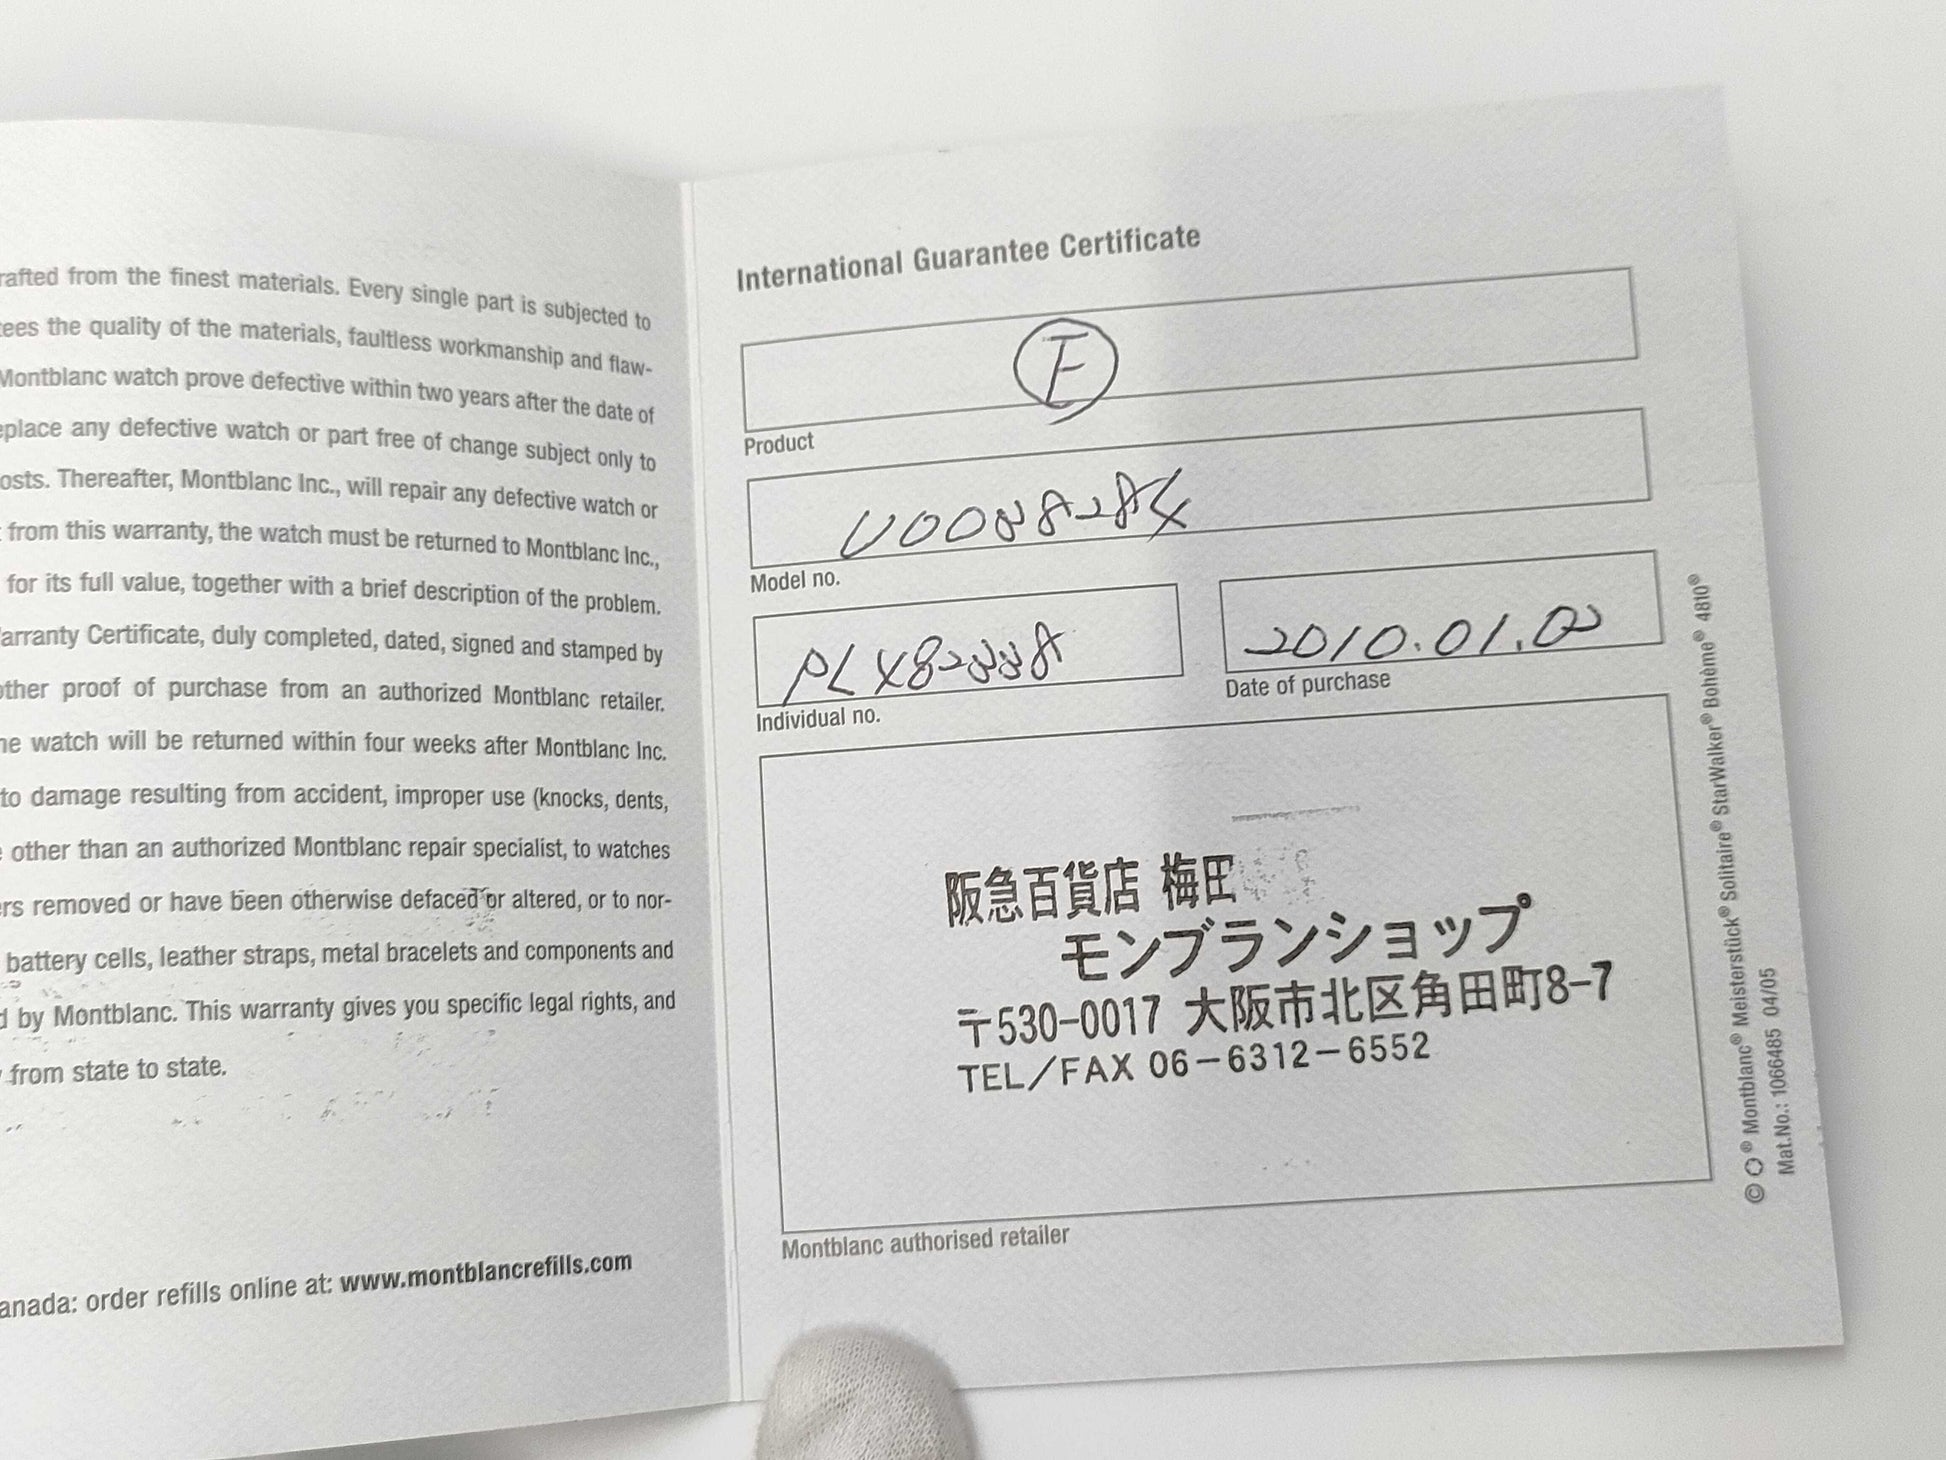 rafted from the finest materials. Every single part is subjected to
tees the quality of the materials, faultless workmanship and flaw-
Montblanc watch prove defective within two years after the date of
eplace any defective watch or part free of change subject only to
osts. Thereafter, Montblanc Inc., will repair any defective watch or
from this warranty, the watch must be returned to Montblanc Inc.,
for its full value, together with a brief description of the problem.
arranty Certificate, duly completed, dated, signed and stamped by
other proof of purchase from an authorized Montblanc retailer.
he watch will be returned within four weeks after Montblanc Inc.
to damage resulting from accident, improper use (knocks, dents,
other than an authorized Montblanc repair specialist, to watches
ers removed or have been otherwise defaced or altered, or to nor-
battery cells, leather straps, metal bracelets and components and
d by Montblanc. This warranty gives you specific legal rights, and
from state to state.
anada: order refills online at: www.montblancrefills.com
International Guarantee Certificate
F
Product
U0088284
Model no.
PLX82888
Individual no.
2010.01.02
Date of purchase
阪急百貨店 梅田
モンブランショップ
〒530-0017 大阪市北区角田町8-7
TEL/FAX 06-6312-6552
Montblanc authorised retailer
© ® Montblanc® Meisterstück® Solitaire® StarWalker® Bohème® 4810®
Mat.No.: 1066485 04/05